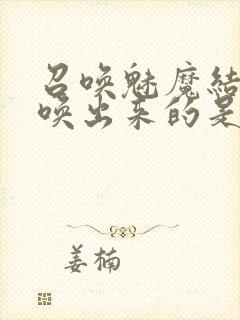 召唤魅魔结
唤出来的是
姜楠